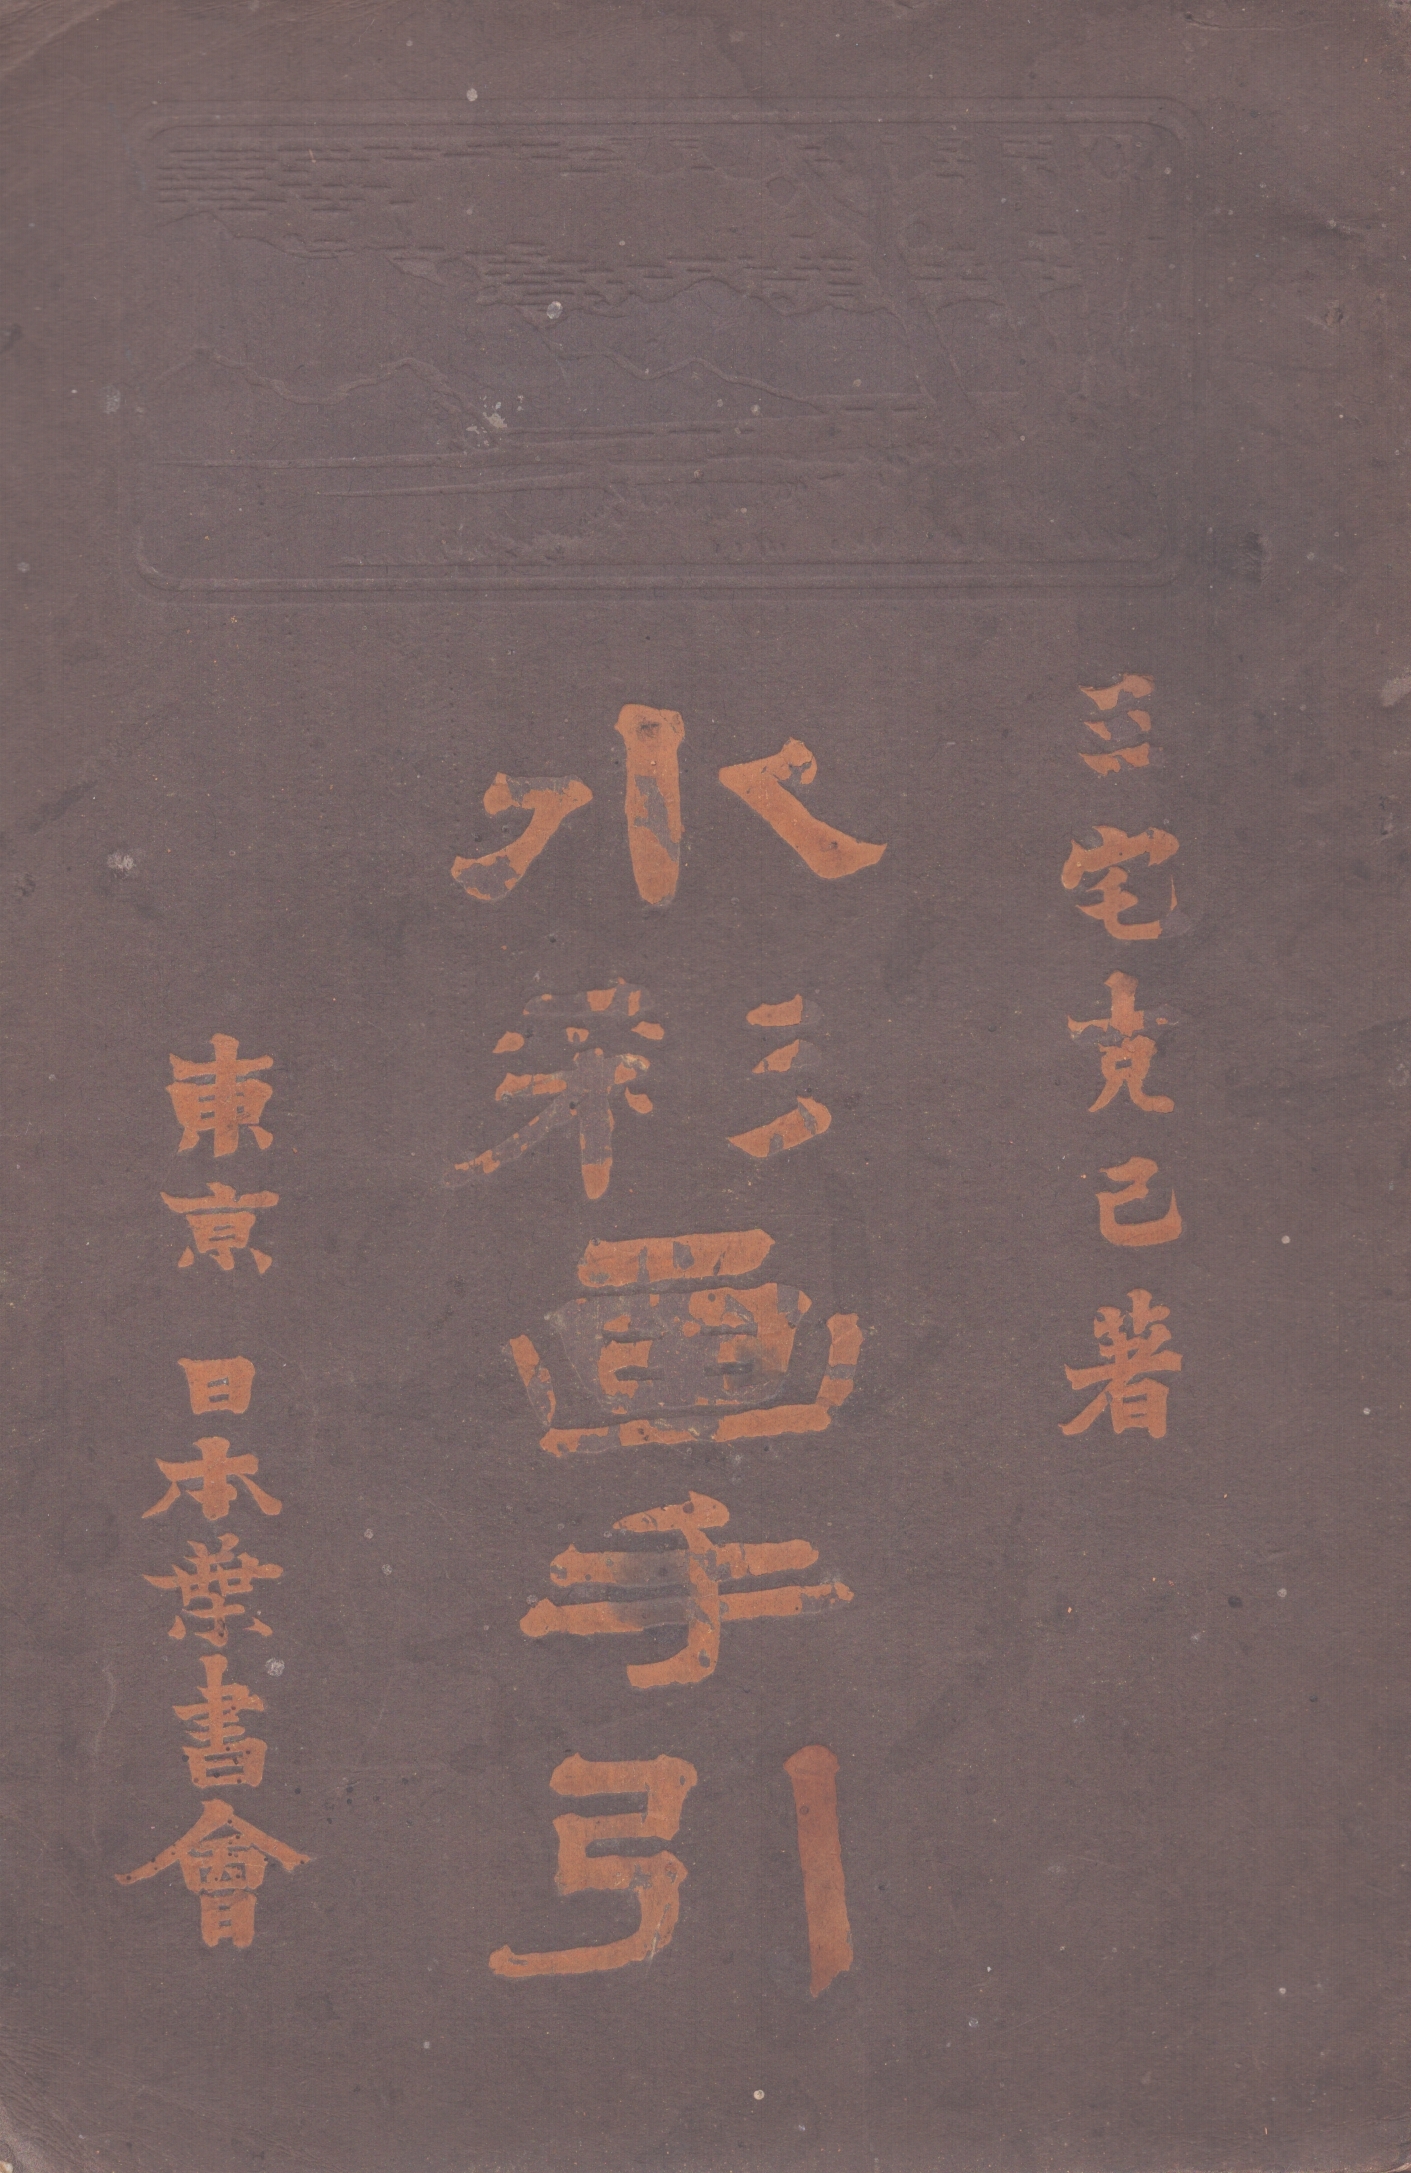 三宅克己著
水彩画手引
東京 日本葉書會